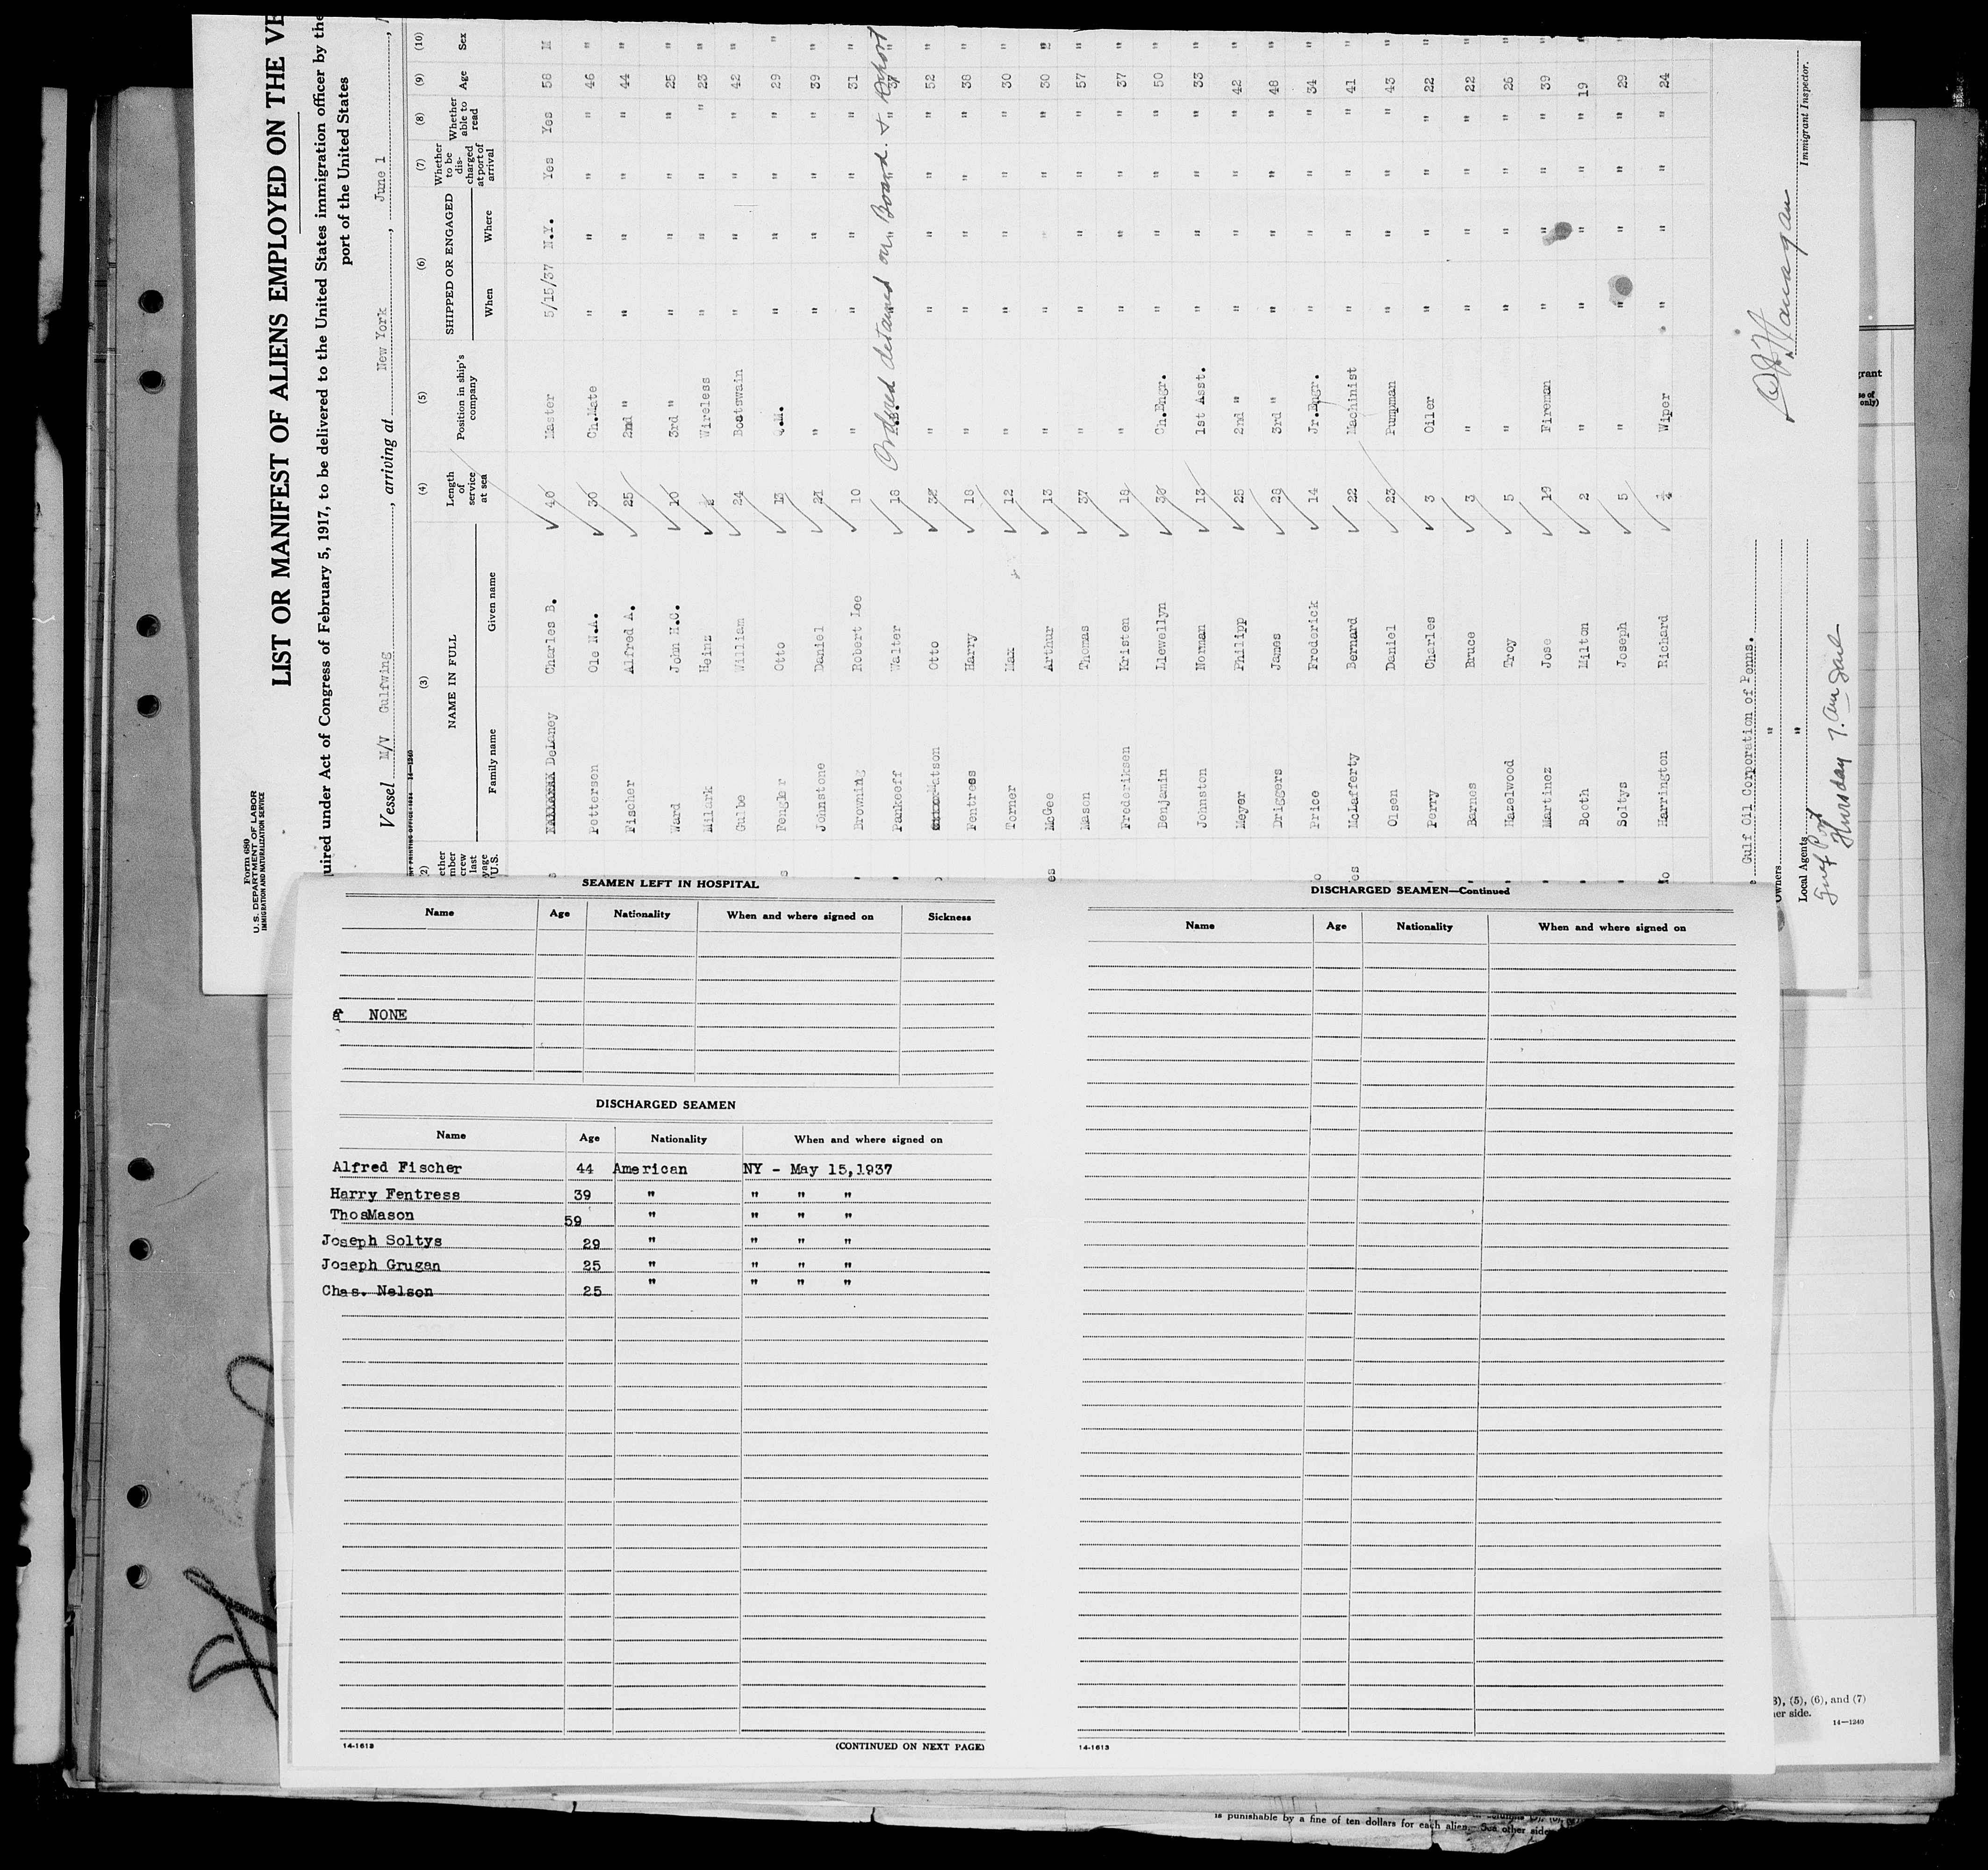 Form 680
U. S. DEPARTMENT OF LABOR
IMMIGRATION AND NATURALIZATION SERVICE
LIST OR MANIFEST OF ALIENS EMPLOYED ON THE VE
quired under Act of Congress of February 5, 1917, to be delivered to the United States immigration officer by the
port of the United States
Vessel M/V Gulfwing, arriving at New York, June 1
14—1240
(2) (3) (4) (5) (6) (7) (8) (9) (10)
NAME IN FULL Length of service at sea Position in ship's company SHIPPED OR ENGAGED Whether to be discharged at port of arrival Whether able to read Age Sex
Family name Given name When Where
DeLaney Charles B. 40 Master 5/15/37 N.Y. Yes Yes 58 M
Petterson Ole N.A. 30 Ch.Mate " " " " 46 "
Fischer Alfred A. 25 2nd " " " " " 44 "
Ward John H.C. 10 3rd " " " " " 25 "
Milark Heinz Wireless " " " " 23 "
Gulbe William 24 Boatswain " " " " 42 "
Fengler Otto 13 Q.M. " " " " 29 "
Johnstone Daniel 21 " " " " " 39 "
Browning Robert Lee 10 " " " " " 31 "
Pankeeff Walter 18 37 "
Ordered detained on Board. & Report
Matson Otto 32 " " " " " 52 "
Fentress Harry 18 " " " " " 38 "
Torner Max 12 " " " " " 30 "
McGee Arthur 13 " " " " " 30 "
Mason Thomas 37 " " " " " 57 "
Frederiksen Kristen 18 " " " " " 37 "
Benjamin Llewellyn 30 Ch.Engr. " " " " 50 "
Johnston Norman 13 1st Asst. " " " " 33 "
Meyer Philipp 25 2nd " " " " " 42 "
Driggers James 28 3rd " " " " " 48 "
Price Frederick 14 Jr.Engr. " " " " 34 "
McLafferty Bernard 22 Machinist " " " " 41 "
Olsen Daniel 23 Pumpman " " " " 43 "
Perry Charles 3 Oiler " " " " 22 "
Barnes Bruce 3 " " " " " 22 "
Hazelwood Troy 5 " " " " " 26 "
Martinez Jose 19 Fireman " " " " 39 "
Booth Milton 2 " " " " " 19 "
Soltys Joseph 5 " " " " " 29 "
Harrington Richard Wiper " " " " 24 "
Gulf Oil Corporation of Penna.
Owners "
Local Agents "
Immigrant Inspector.
Gulf Port
Thursday 7. am Sail
SEAMEN LEFT IN HOSPITAL
Name Age Nationality When and where signed on Sickness
NONE
DISCHARGED SEAMEN
Name Age Nationality When and where signed on
Alfred Fischer 44 American NY - May 15,1937
Harry Fentress 39 " " " "
ThosMason 59 " " " "
Joseph Soltys 29 " " " "
Joseph Grugan 25 " " " "
Chas. Nelson 25 " " " "
14-1613
(CONTINUED ON NEXT PAGE)
DISCHARGED SEAMEN—Continued
Name Age Nationality When and where signed on
14-1613
3), (5), (6), and (7)
her side.
14—1240
is punishable by a fine of ten dollars for each alien. See other side